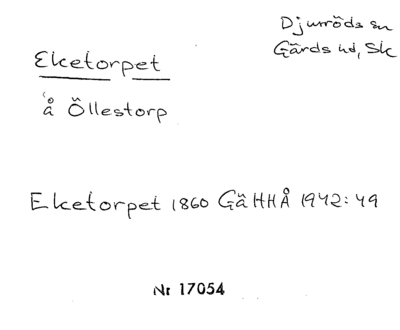 Djurröds sn
Gärds hd, Sk
Eketorpet
å Öllestorp
Eketorpet 1860 GäHHÅ 1942:49
Nr 17054